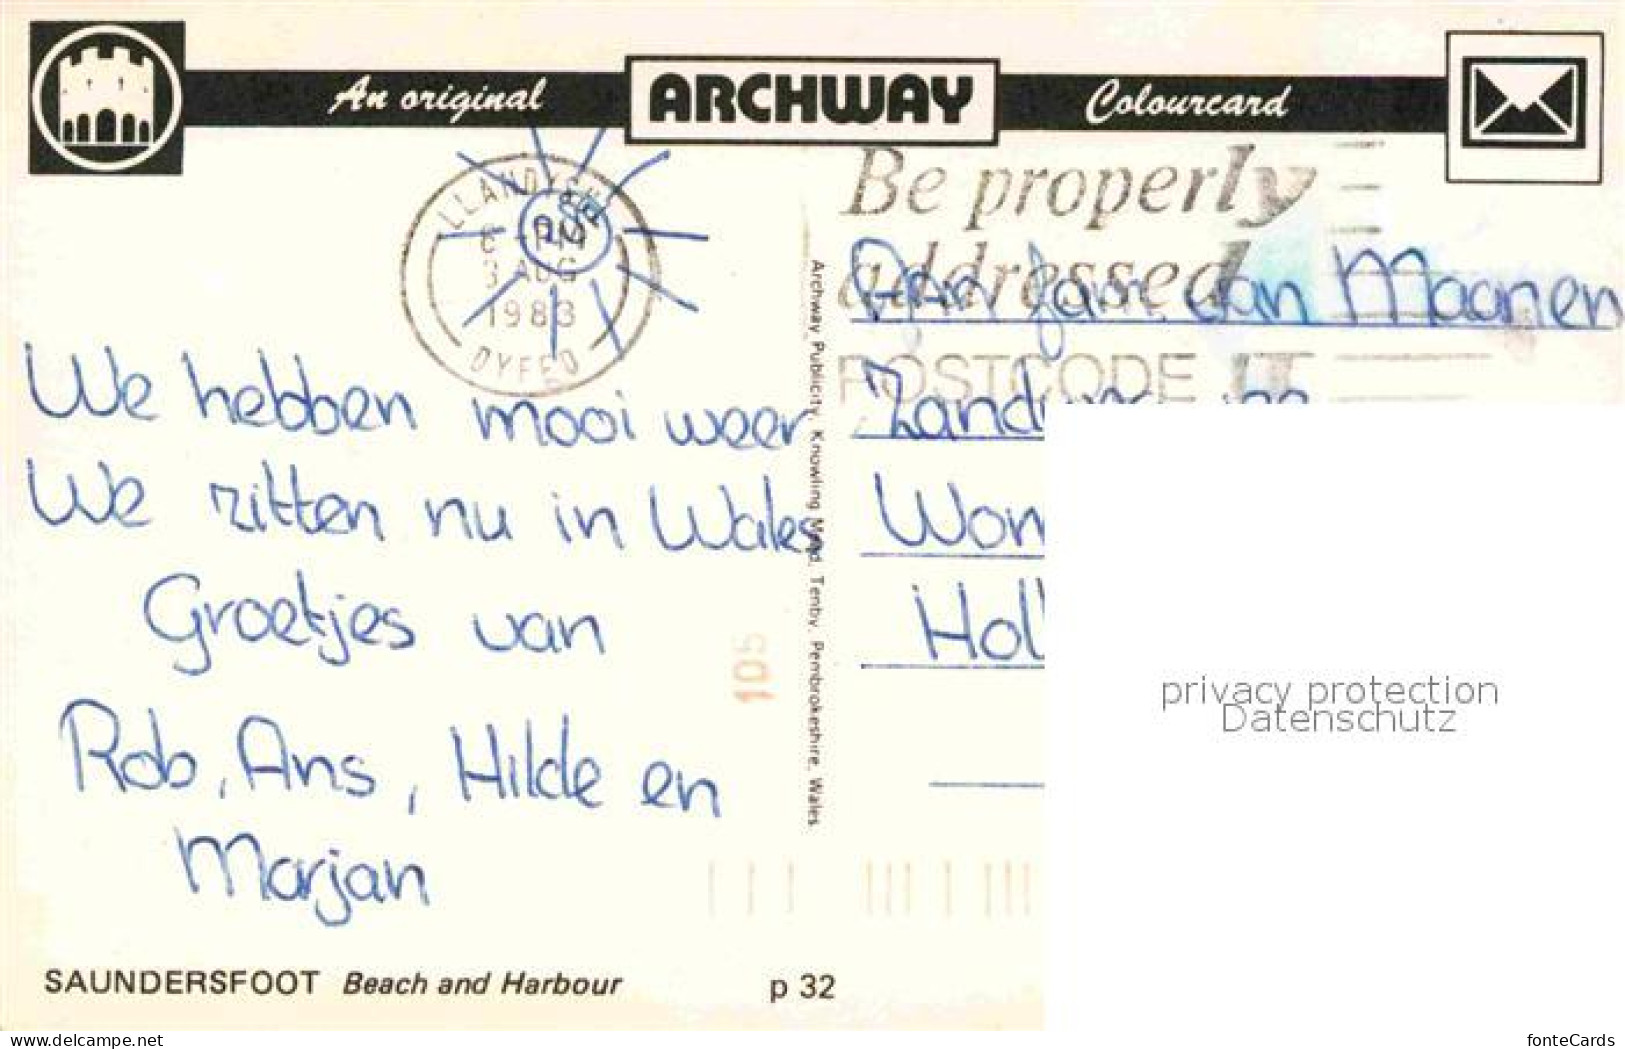 An original ARCHWAY Colourcard
LLANDYSUL
PM
3 AUG
1983
DYFED
Be properly
addressed
POSTCODE IT
We hebben mooi weer
We zitten nu in Wales
Groetjes van
Rob, Ans, Hilde en
Marjan
Archway Publicity, Knowling Mead, Tenby, Pembrokeshire, Wales.
105
Fam. van Maanen
privacy protection
Datenschutz
SAUNDERSFOOT Beach and Harbour p 32
www.delcampe.net
fonteCards